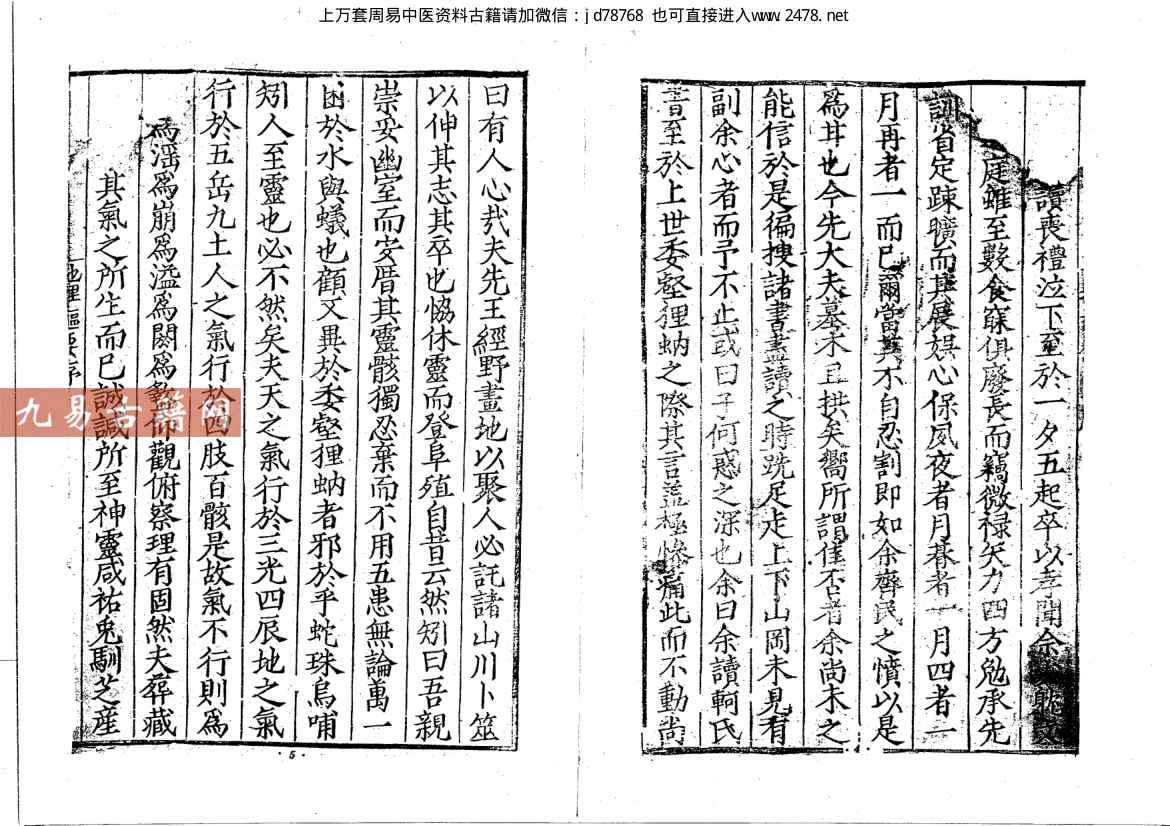 上万套周易中医资料古籍请加微信：jd78768 也可直接进入www.2478.net
讀喪禮泣下至於一夕五起卒以孝聞余
庭雖至數食寐俱廢長而竊微祿矢力四方勉承先
訓省定踈曠而其展娯心保夙夜者月朞者一月四者二
月再者一而已爾當其不自忍割即如余齊民之憤以是
爲甘也今先大夫墓木且拱矣嚮所謂僅否者余尚未之
能信於是徧搜諸書晝讀之時跣足走上下山岡未見有
副余心者而予不止或曰子何惑之深也余曰余讀軻氏
書至於上世委壑狸蚋之際其言盖極慘痛此而不動尚
4
曰有人心㦲夫先王經野畫地以聚人必託諸山川卜筮
以伸其志其卒也恊休靈而登阜殖自昔云然矧曰吾親
崇妥幽室而安厝其靈骸獨忍棄而不用五患無論萬一
困於水與蟻也顧又異於委壑狸蚋者邪於乎蛇珠烏哺
矧人至靈也必不然矣夫天之氣行於三光四辰地之氣
行於五岳九土人之氣行於四肢百骸是故氣不行則爲
爲滛爲崩爲溢爲閼爲盭仰觀俯察理有固然夫葬藏
其氣之所生而已誠諴所至神靈咸祐兎馴芝産
地理樞要序
5
九易古籍网